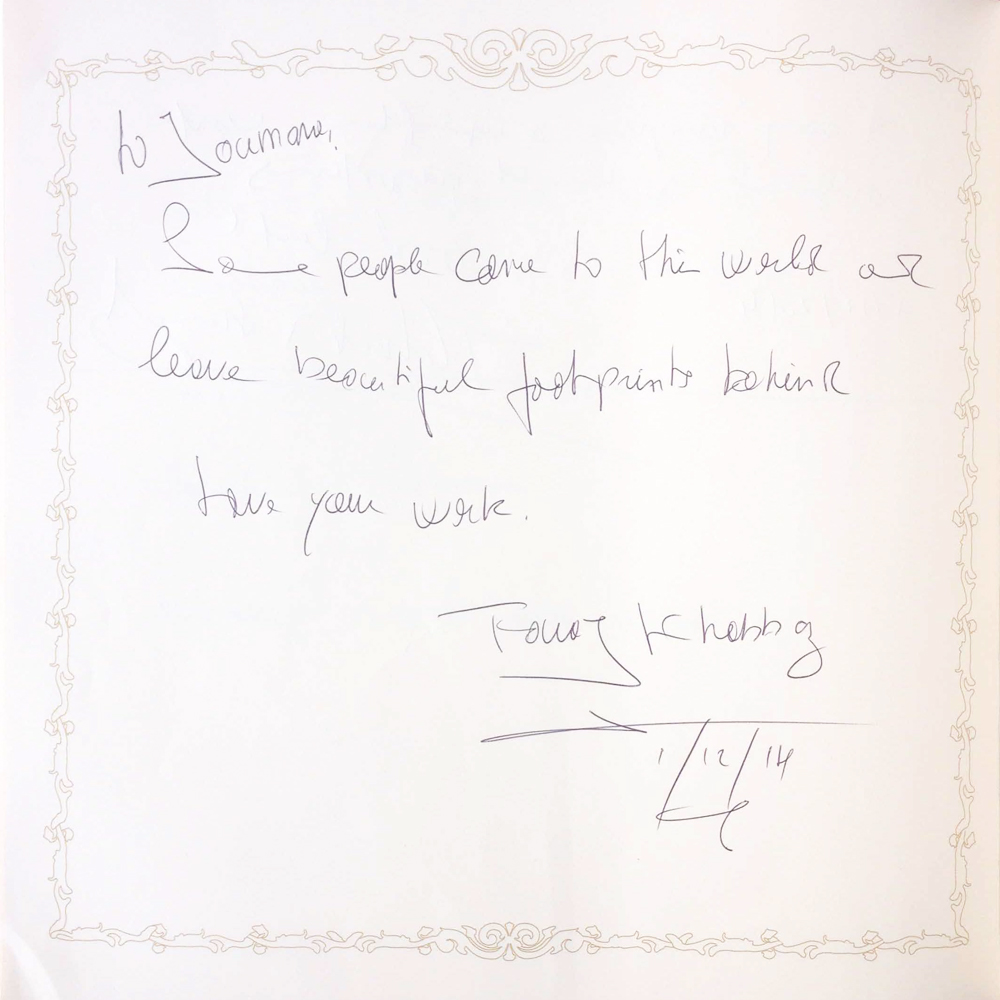 to Joumana,
Some people come to this world and
leave beautiful footprints behind
Love your work.
Khabbaz
1/12/14